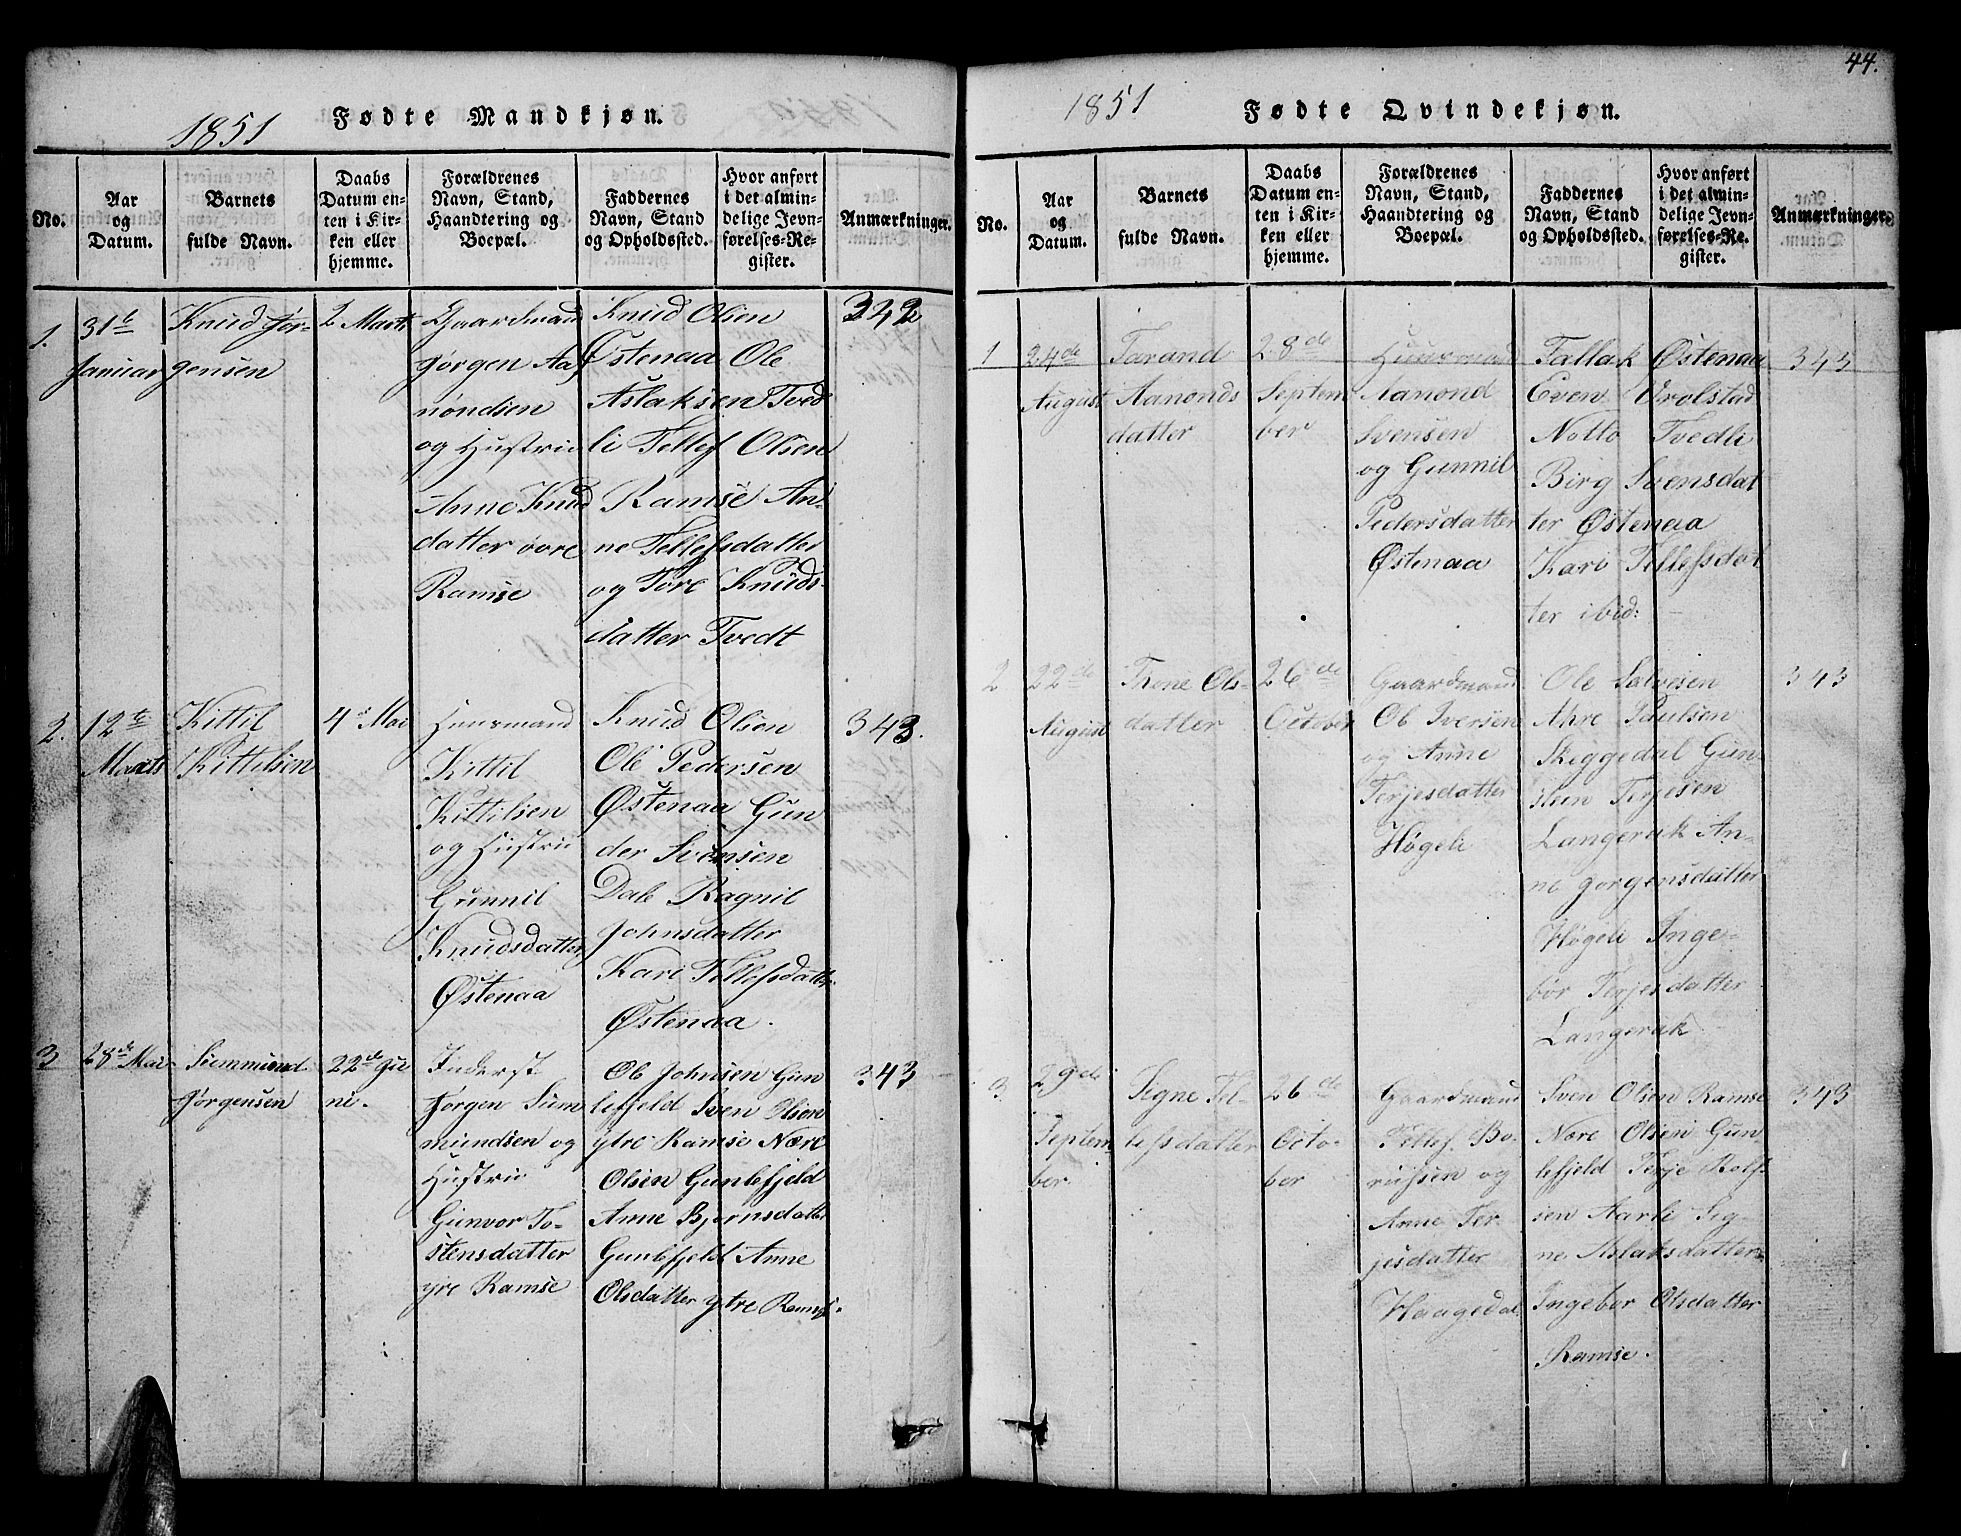 44.
1851 Fødte Mandkjøn.
No.
Aar og Datum.
Barnets fulde Navn.
Daabs Datum enten i Kirken eller hjemme.
Forældrenes Navn, Stand, Haandtering og Boepæl.
Faddernes Navn, Stand og Opholdssted.
Hvor anført i det almindelige Jevnførelses-Register.
Anmærkninger.
1.
31t
Januar
Knud Jør-
gensen
2 Marts
Gaardmand
Jørgen Aa-
nøndsen
og Hustrue
Anne Knud
datter øvre
Ramse
Knud Olsen
Østenaa Ole
Aslaksen Tved
li Tellef Olsen
Ramse An-
ne Tellefsdatter
og Tore Knuds-
datter Tvedt
342
2.
12te
Marts
Kittil
Kittilsen
4de Mai
Huusmand
Kittil
Kittilsen
og Hustrue
Gunnil
Knudsdatter
Østenaa
Knud Olsen
Ole Pedersen
Østenaa Gun
der Svensen
Dale Ragnil
Johnsdatter
Kari Tellefsdatter
Østenaa.
343.
3
28de Mai
Summund
Jørgensen
22de Ju
ni.
Inderst
Jørgen Sum
mundsen og
Hustrue
Gunvor To-
stensdatter
ytre Ramse
Ole Johnsen Gun
lefjeld Sven Olsen
ytre Ramse Nære
Olsen Gunlefjeld
Anne Bjørnsdatter
Gunlefjeld Anne
Olsdatter ytre Ramse.
343
1851 Fødte Qvindekjøn.
No.
Aar og Datum.
Barnets fulde Navn.
Daabs Datum enten i Kirken eller hjemme.
Forældrenes Navn, Stand, Haandtering og Boepæl.
Faddernes Navn, Stand og Opholdssted.
Hvor anført i det almindelige Jevnførelses-Register.
Anmærkninger.
1
24de
August
Tarand
Aanonds
datter
28de
Septem
ber
Huusmand
Aanond
Svensen
og Gunnil
Pedersdatter
Østenaa
Tallak Østenaa
Even Urolstad
Notto Tvedli
Birg Svensdat
ter Østenaa
Kari Tellefsdat
ter ibid:
343
2
22de
August
Thone Ols-
datter
26de
October
Gaardmand
Ole Iversen
og Anne
Terjesdatter
Høgeli
Ole Salvesen
Ahre Paulsen
Skeggedal Gun-
stein Terjesen
Langerak An-
ne Jørgensdatter
Høgeli Inge-
bor Terjesdatter
Langerak
343
3
29de
Septem
ber
Segne Tel-
lefsdatter
26de
Octo-
ber
Gaardmand
Tellef Bo-
rufsen og
Anne Ter
jesdatter
Haagedal
Sven Olsen Ramse
Nære Olsen Gun
lefjeld Terje Rolf-
sen Aarli Sig-
ne Aslaksdatter
Ingebor Olsdatter
Ramse.
343